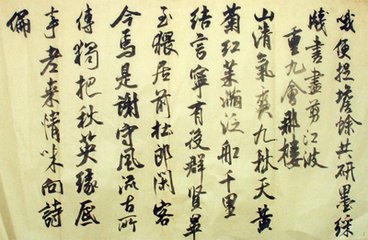 哦便捉蟾蜍共研墨綵
牋書盡剪江波
重九會郡樓
山清氣爽九秋天黃
菊紅茱滿泛船千里
結言寧有後群賢畢
至猥居前杜郎閑客
今焉是謝守風流古所
傳獨把秋英緣底
事老來情味向詩
偏